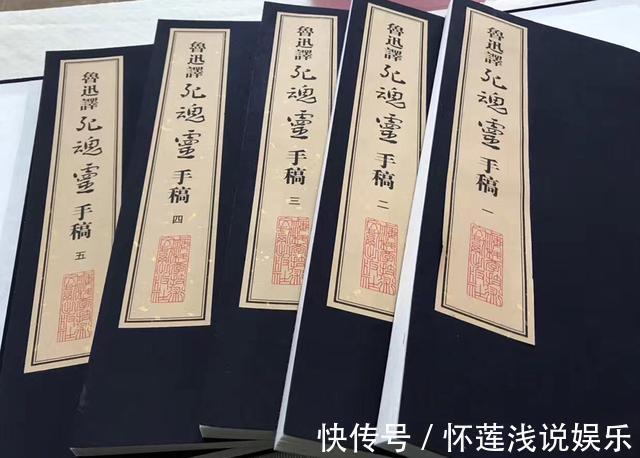 魯迅譯死魂靈手稿 一
魯迅譯死魂靈手稿 二
魯迅譯死魂靈手稿 三
魯迅譯死魂靈手稿 四
魯迅譯死魂靈手稿 五
快传号 / 怀莲浅说娱乐